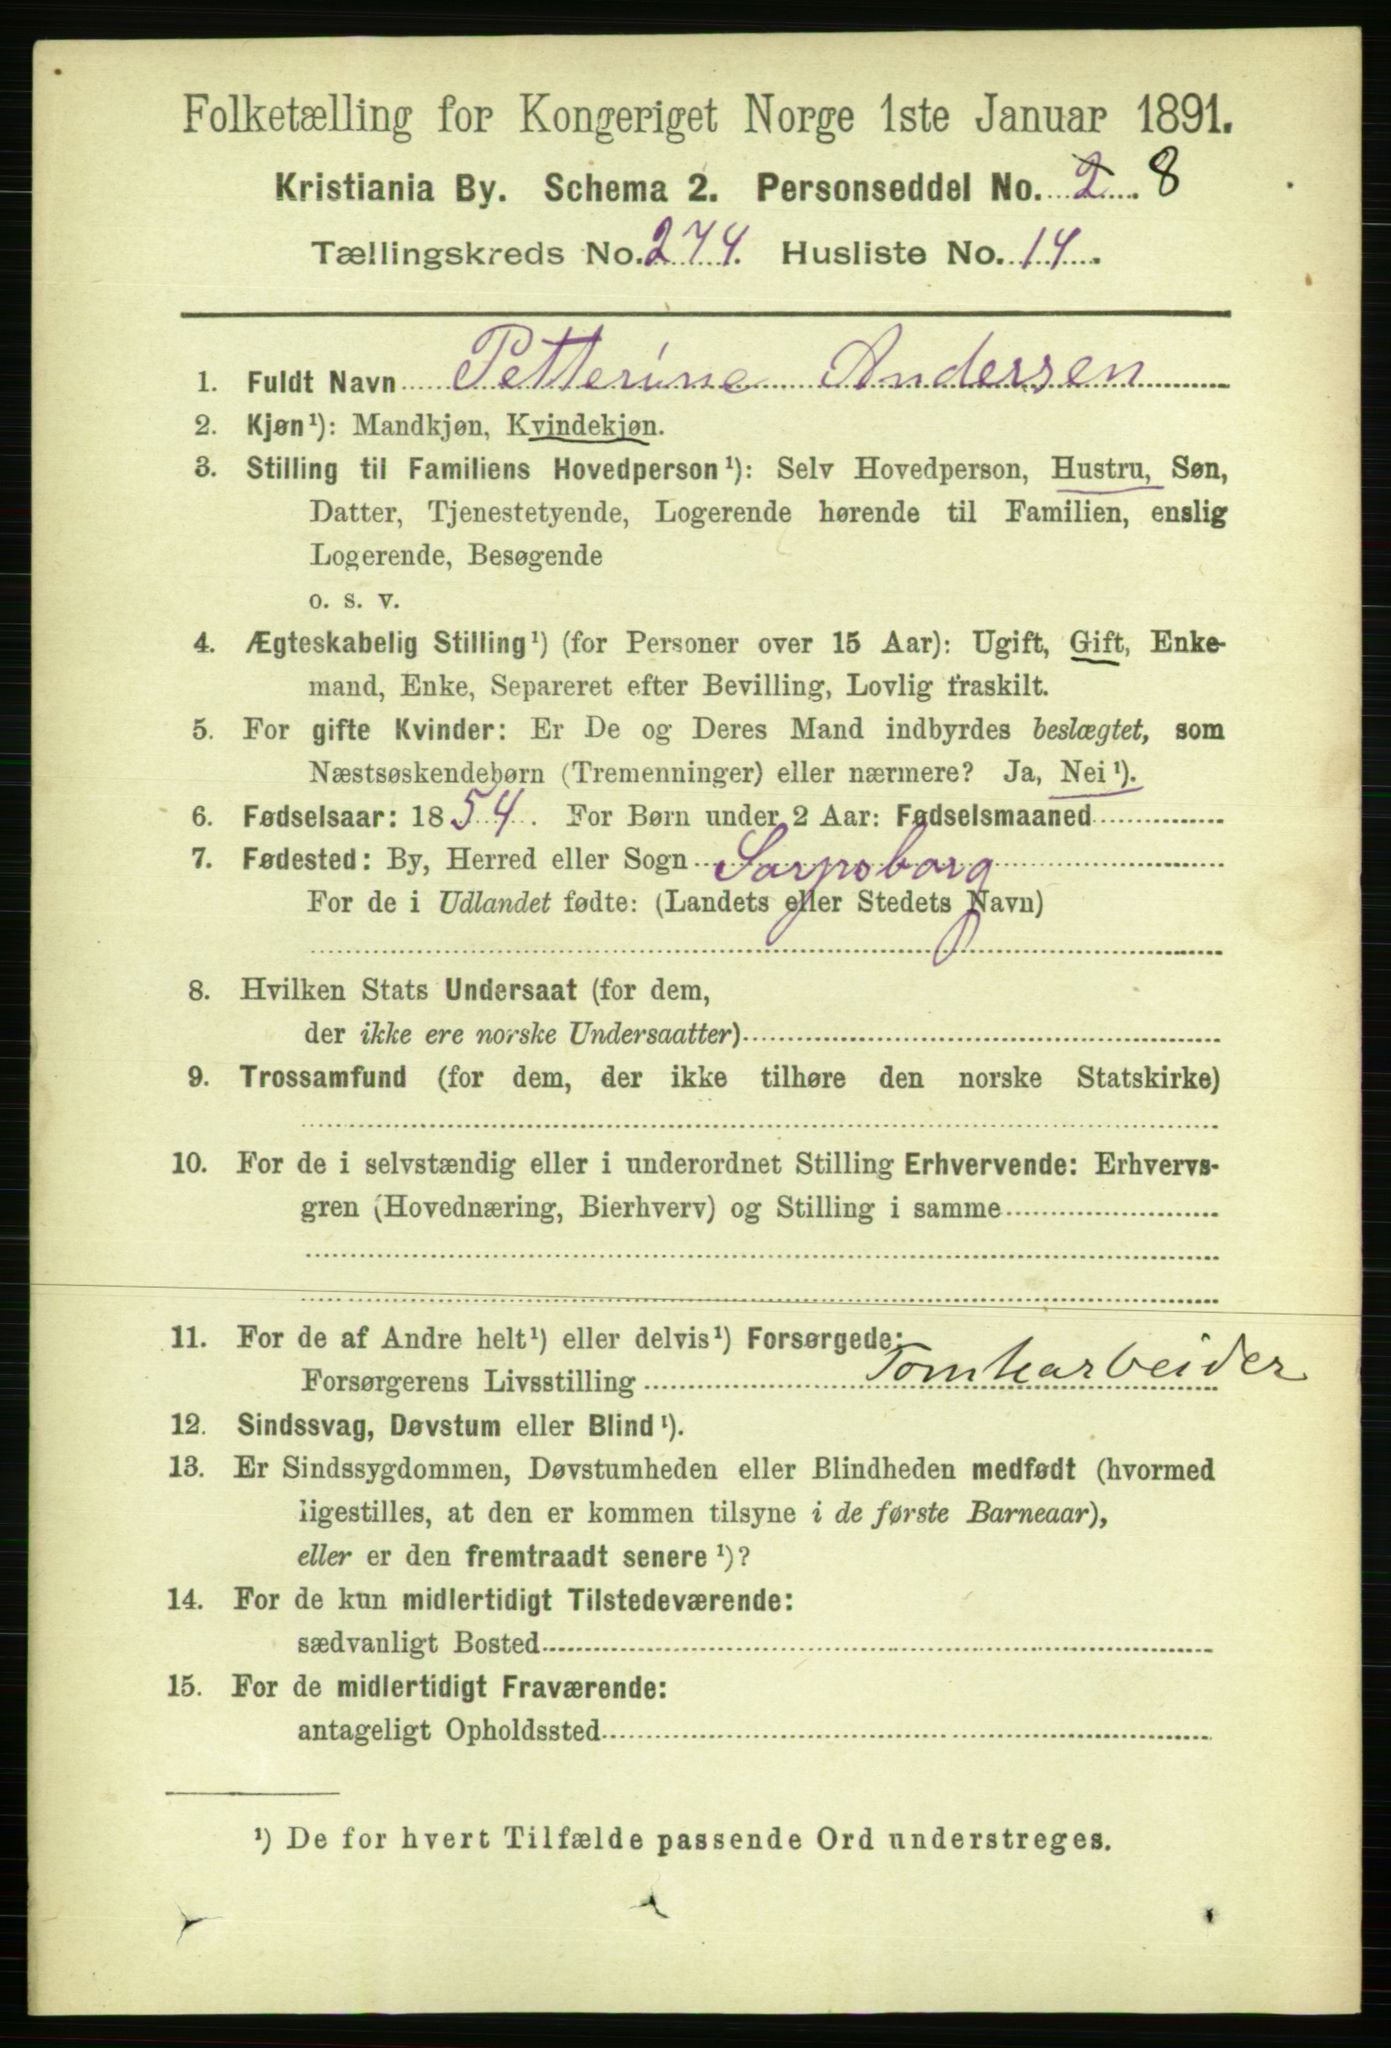 Folketælling for Kongeriget Norge 1ste Januar 1891.
Kristiania By. Schema 2. Personseddel No. 2 8
Tællingskreds No. 274. Husliste No. 14.
1. Fuldt Navn Petterine Andersen
2. Kjøn¹): Mandkjøn, Kvindekjøn.
3. Stilling til Familiens Hovedperson¹): Selv Hovedperson, Hustru, Søn,
Datter, Tjenestetyende, Logerende hørende til Familien, enslig
Logerende, Besøgende
o. s. v.
4. Ægteskabelig Stilling¹) (for Personer over 15 Aar): Ugift, Gift, Enke-
mand, Enke, Separeret efter Bevilling, Lovlig fraskilt.
5. For gifte Kvinder: Er De og Deres Mand indbyrdes beslægtet, som
Næstsøskendebørn (Tremenninger) eller nærmere? Ja, Nei¹).
6. Fødselsaar: 1854. For Børn under 2 Aar: Fødselsmaaned
7. Fødested: By, Herred eller Sogn Sarpsborg
For de i Udlandet fødte: (Landets eller Stedets Navn)
8. Hvilken Stats Undersaat (for dem,
der ikke ere norske Undersaatter)
9. Trossamfund (for dem, der ikke tilhøre den norske Statskirke)
10. For de i selvstændig eller i underordnet Stilling Erhvervende: Erhvervs-
gren (Hovednæring, Bierhverv) og Stilling i samme
11. For de af Andre helt¹) eller delvis¹) Forsørgede:
Forsørgerens Livsstilling Tomtearbeider
12. Sindssvag, Døvstum eller Blind¹).
13. Er Sindssygdommen, Døvstumheden eller Blindheden medfødt (hvormed
ligestilles, at den er kommen tilsyne i de første Barneaar),
eller er den fremtraadt senere¹)?
14. For de kun midlertidigt Tilstedeværende:
sædvanligt Bosted
15. For de midlertidigt Fraværende:
antageligt Opholdssted
¹) De for hvert Tilfælde passende Ord understreges.